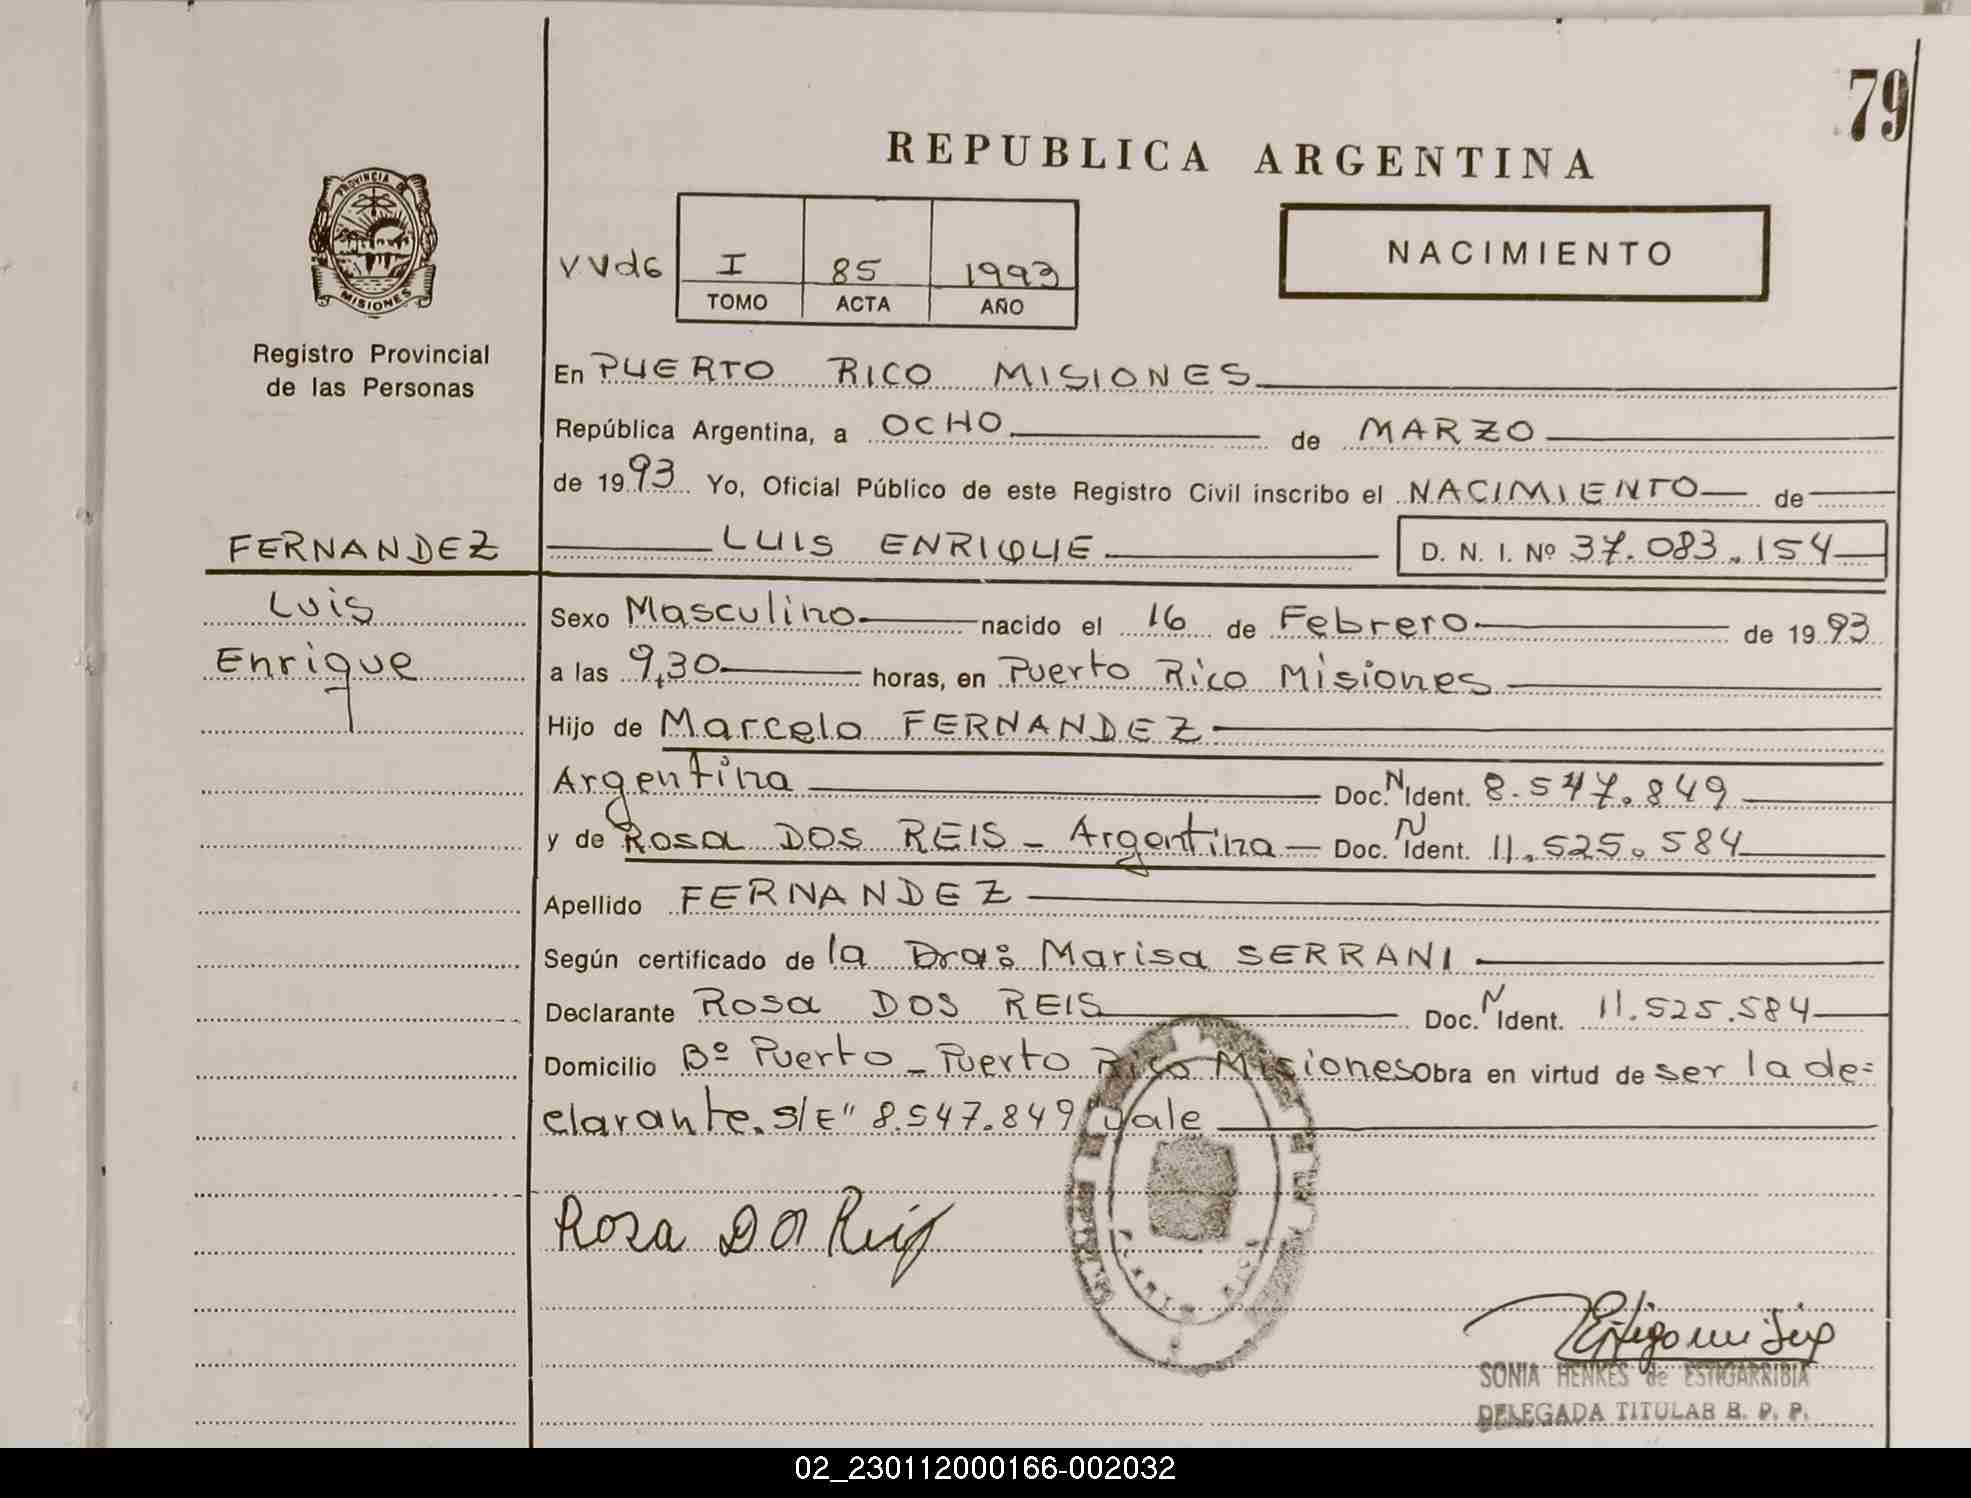 79
REPUBLICA ARGENTINA
PROVINCIA DE
MISIONES
Registro Provincial
de las Personas
I 85 1993
TOMO ACTA AÑO
NACIMIENTO
En PUERTO RICO MISIONES
República Argentina, a OCHO de MARZO
de 1993 Yo, Oficial Público de este Registro Civil inscribo el NACIMIENTO de
FERNANDEZ
LUIS ENRIQUE D. N. I. Nº 37.083.154
Luis
Enrique
Sexo Masculino nacido el 16 de Febrero de 1993
a las 9,30 horas, en Puerto Rico Misiones
Hijo de Marcelo FERNANDEZ
Argentina Doc. N Ident. 8.547.849
y de Rosa DOS REIS - Argentina Doc. N Ident. 11.525.584
Apellido FERNANDEZ
Según certificado de la Dra: Marisa SERRANI
Declarante Rosa DOS REIS Doc. N Ident. 11.525.584
Domicilio Bº Puerto - Puerto Rico Misiones Obra en virtud de ser la de=
clarante. S/E" 8.547.849" vale
Rosa
SONIA HENKES de ESTIGARRIBIA
DELEGADA TITULAR R. P. P.
02_230112000166-002032